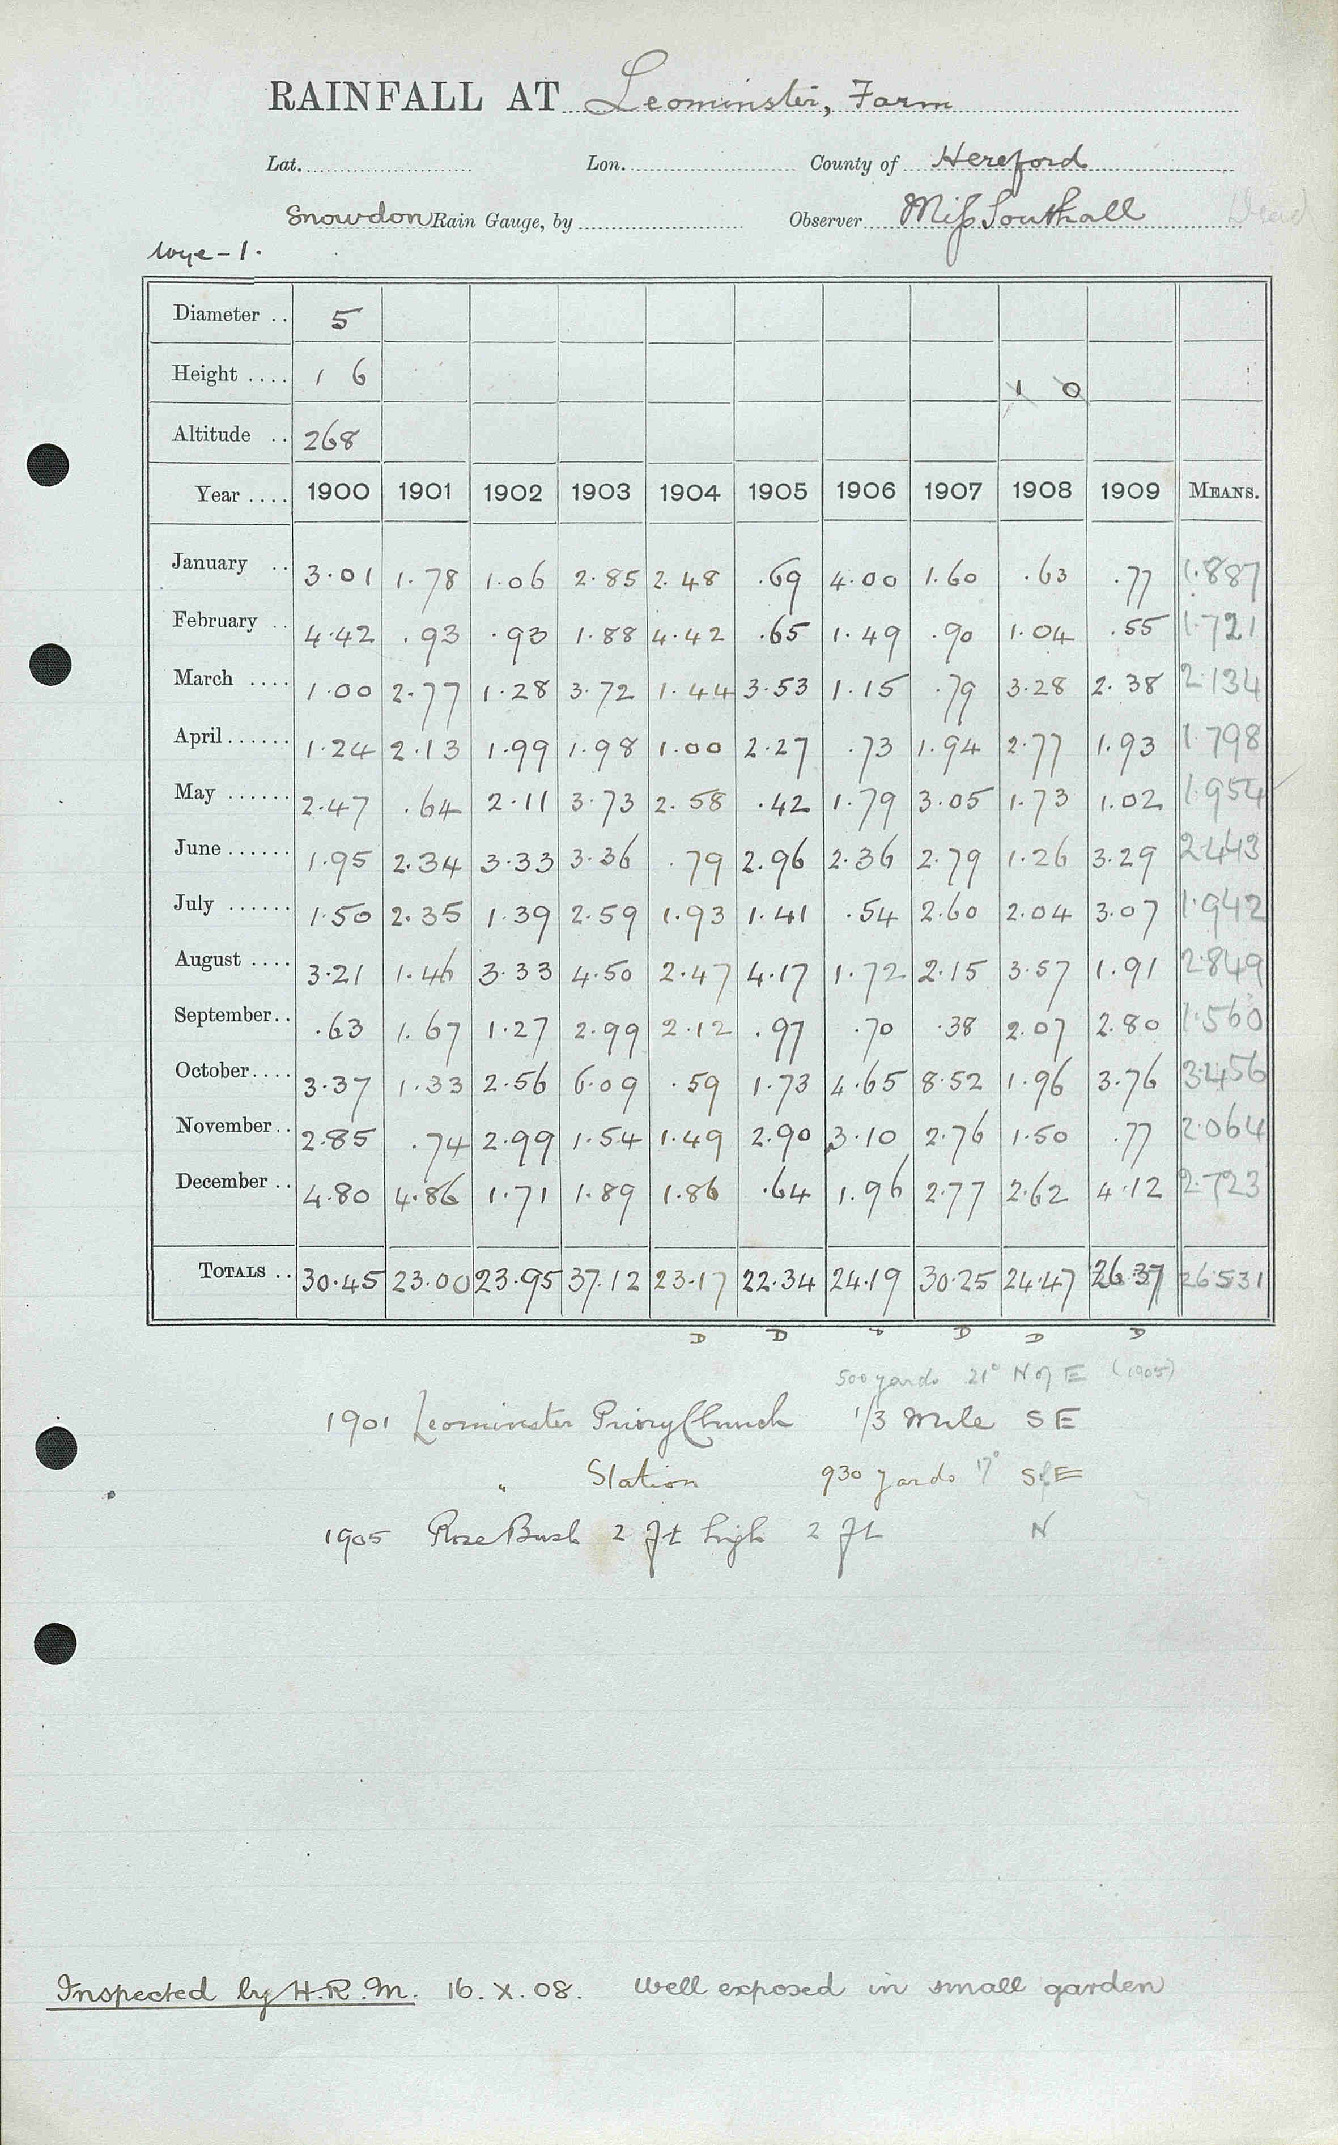 RAINFALL AT Leominster, Farm
Lat. Lon. County of Hereford
Snowdon Rain Gauge, by Observer Miss Southall Dead
Wye - 1.
Diameter .. 5
Height .... 1 6 1 0
Altitude .. 268
Year .... 1900 1901 1902 1903 1904 1905 1906 1907 1908 1909 MEANS.
January .. 3.01 1.78 1.06 2.85 2.48 .69 4.00 1.60 .63 .77 1.887
February .. 4.42 .93 .93 1.88 4.42 .65 1.49 .90 1.04 .55 1.721
March .... 1.00 2.77 1.28 3.72 1.44 3.53 1.15 .79 3.28 2.38 2.134
April...... 1.24 2.13 1.99 1.98 1.00 2.27 .73 1.94 2.77 1.93 1.798
May ...... 2.47 .64 2.11 3.73 2.58 .42 1.79 3.05 1.73 1.02 1.954
June...... 1.95 2.34 3.33 3.36 .79 2.96 2.36 2.79 1.26 3.29 2.443
July ...... 1.50 2.35 1.39 2.59 1.93 1.41 .54 2.60 2.04 3.07 1.942
August .... 3.21 1.46 3.33 4.50 2.47 4.17 1.72 2.15 3.57 1.91 2.849
September.. .63 1.67 1.27 2.99 2.12 .97 .70 .38 2.07 2.80 1.560
October.... 3.37 1.33 2.56 6.09 .59 1.73 4.65 8.52 1.96 3.76 3.456
November.. 2.85 .74 2.99 1.54 1.49 2.90 3.10 2.76 1.50 .77 2.064
December .. 4.80 4.86 1.71 1.89 1.86 .64 1.96 2.77 2.62 4.12 2.723
TOTALS .. 30.45 23.00 23.95 37.12 23.17 22.34 24.19 30.25 24.47 26.37 26.531
D D D D D D
500 yards 21° N of E (1905)
1901 Leominster Priory Church 1/3 Mile SE
" Station 930 yards 17° S of E
1905 Rose Bush 2 ft high 2 ft N
Inspected by H.R.M. 16.X.08. Well exposed in small garden